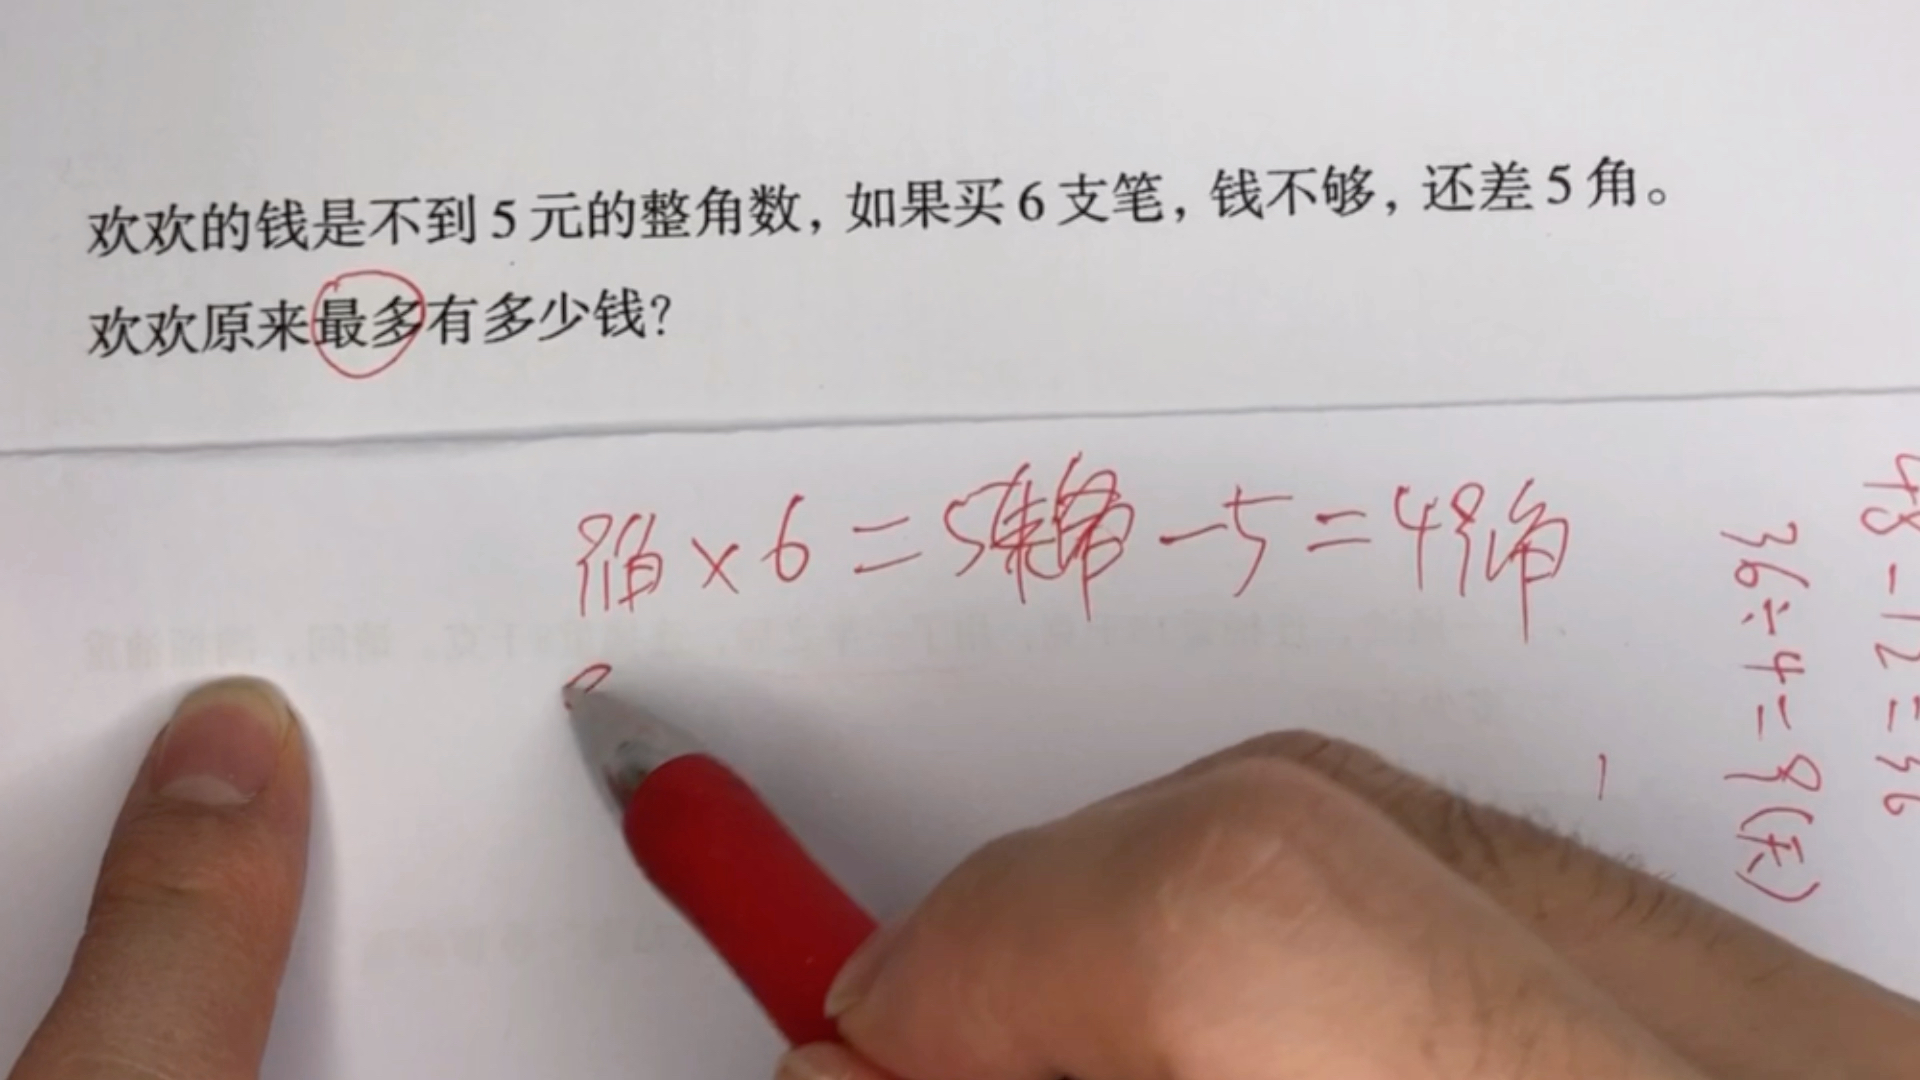 欢欢的钱是不到5元的整角数，如果买6支笔，钱不够，还差5角。
欢欢原来最多有多少钱？
9角×6=5
-5=49角
48-12=36
36÷4=9(天)